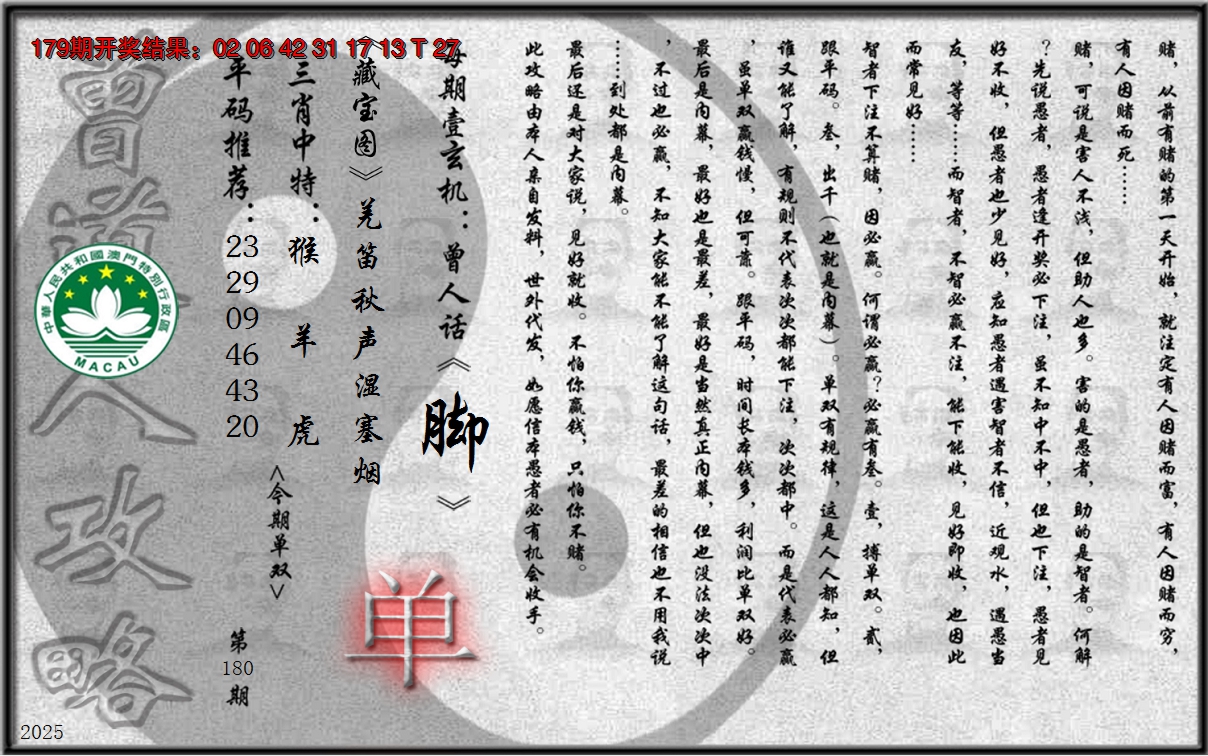 179期开奖结果：02 06 42 31 17 13 T 27
赌，从前有赌的第一天开始，就注定有人因赌而富，有人因赌而穷，
有人因赌而死……
赌，可说是害人不浅，但助人也多。害的是愚者，助的是智者。何解
？先说愚者，愚者逢开奖必下注，虽不知中不中，但也下注，愚者见
好不收，但愚者也少见好，应知愚者遇害智者不信，近观水，遇愚当
友，等等……而智者，不智必赢不注，能下能收，见好即收，也因此
而常见好……
智者下注不算赌，因必赢。何谓必赢？必赢有叁。壹，搏单双。贰，
跟平码。叁，出千（也就是内幕）。单双有规律，这是人人都知，但
谁又能了解，有规则不代表次次都能下注，次次都中。而是代表必赢
，虽单双赢钱慢，但可靠。跟平码，时间长本钱多，利润比单双好。
最后是内幕，最好也是最差，最好是当然真正内幕，但也没法次次中
，不过也必赢，不知大家能不能了解这句话，最差的相信也不用我说
……到处都是内幕。
最后还是对大家说，见好就收。不怕你赢钱，只怕你不赌。
此攻略由本人亲自发料，世外代发，如愿信本愚者必有机会收手。
每期壹玄机：曾人话《脚》
《藏宝图》羌笛秋声湿塞烟
三肖中特：猴 羊 虎
平码推荐：
23
29
09
46
43
20
<今期单双>
单
第
180
期
曾道人攻略
中華人民共和國澳門特別行政區
MACAU
2025